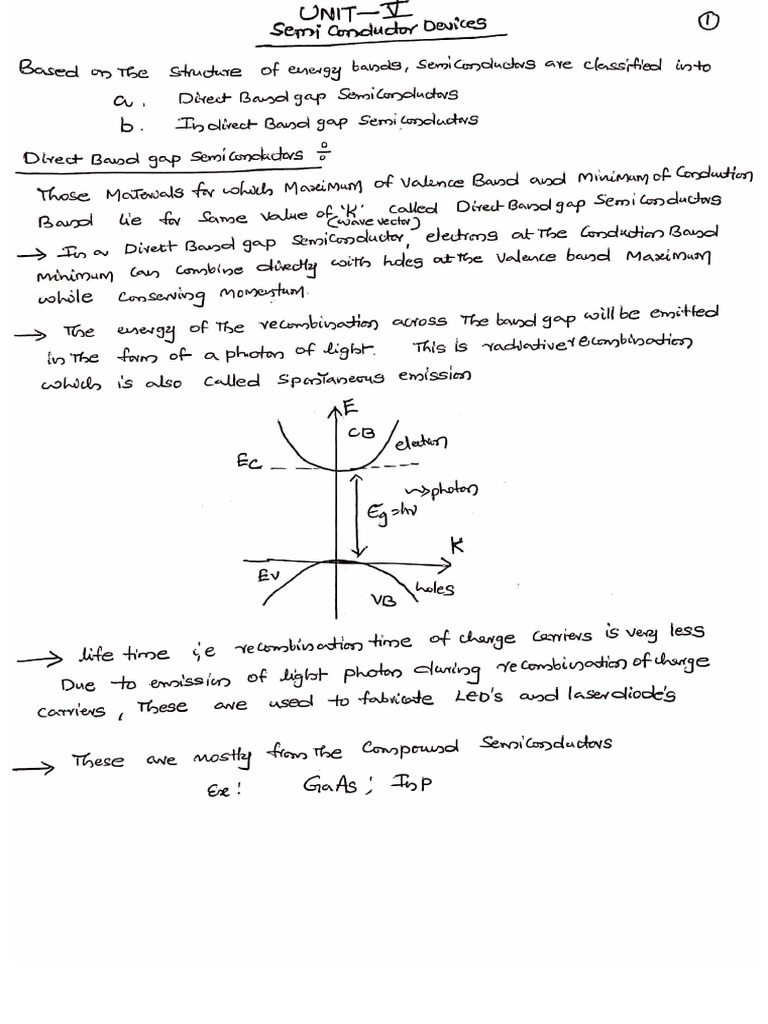 UNIT-V
Semi Conductor Devices
1
Based on The structure of energy bands, semiconductors are classified into
a. Direct Band gap Semiconductors
b. Indirect Band gap Semiconductors
Direct Band gap Semiconductors :
Those Materials for which Maximum of Valence Band and Minimum of Conduction
Band lie for same value of 'K' called Direct Band gap Semiconductors
(wave vector)
→ In a Direct Band gap semiconductor, electrons at The Conduction Band
minimum can combine directly with holes at the Valence band Maximum
while conserving momentum.
→ The energy of The recombination across The band gap will be emitted
in The form of a photon of light. This is radiative recombination
which is also called spontaneous emission
E
CB
electron
Ec
photon
Eg=hν
K
Ev
holes
VB
→ life time i,e recombination time of charge carriers is very less
Due to emission of light photon during recombination of charge
carriers, These are used to fabricate LED's and laser diode's
→ These are mostly from The Compound Semiconductors
Ex: GaAs; InP